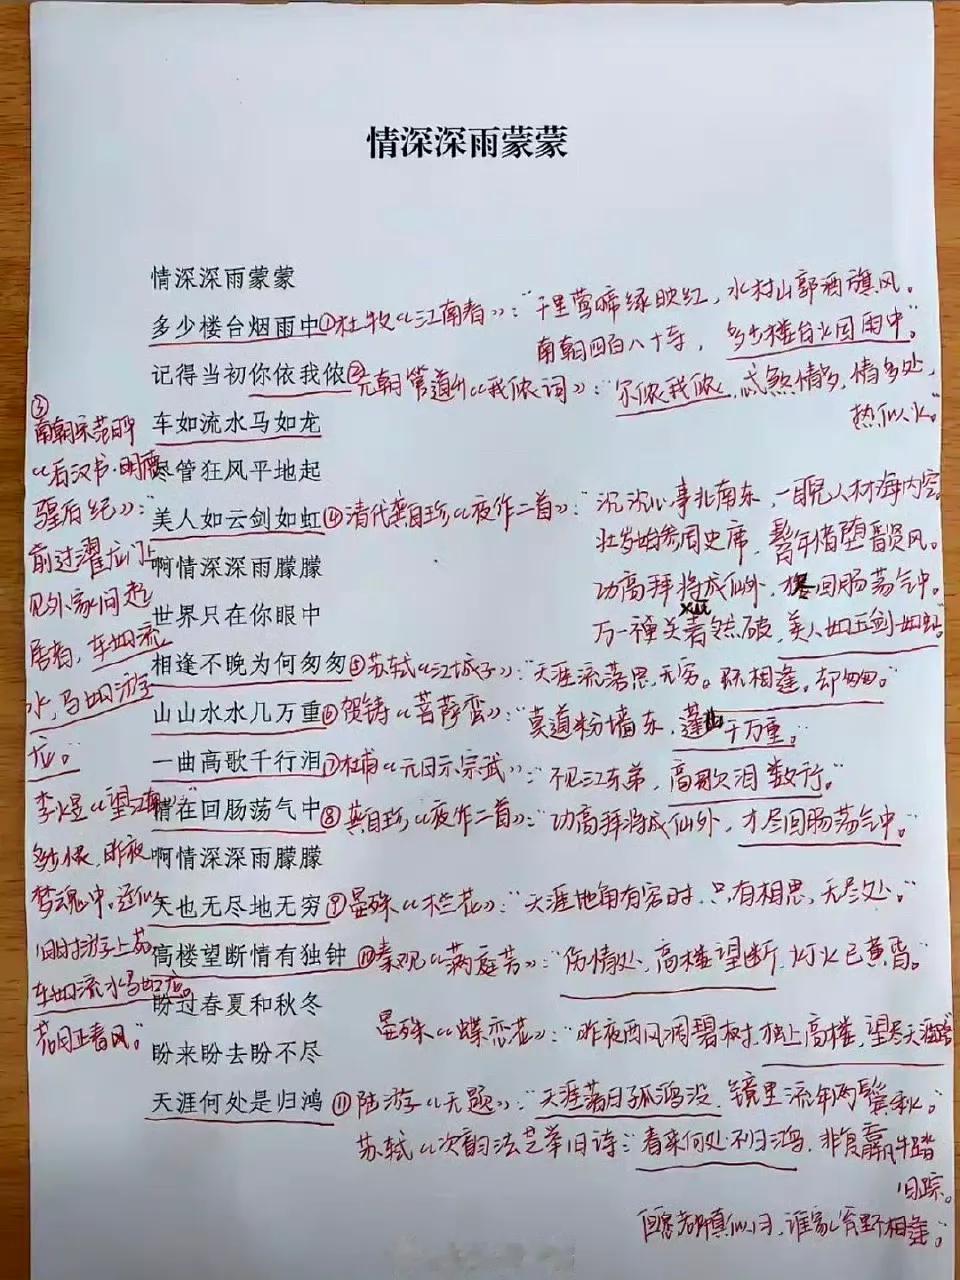 情深深雨蒙蒙
情深深雨蒙蒙
多少楼台烟雨中①杜牧《江南春》:“千里莺啼绿映红,水村山郭酒旗风。
南朝四百八十寺,多少楼台烟雨中。”
记得当初你侬我侬②元朝管道升《我侬词》:“尔侬我侬,忒煞情多,情多处,
热似火。”
车如流水马如龙
③
南朝宋范晔
《后汉书·明德
皇后纪》:“
前过濯龙门上
见外家问起
居者,车如流
水,马如游
龙。”
尽管狂风平地起
美人如云剑如虹④清代龚自珍《夜作二首》:“沉沉心事北南东,一睨人材海内空。
壮岁始参周史席,髫年惜堕晋贤风。
功高拜将成仙外,才尽回肠荡气中。
万一禅关砉然破,美人如玉剑如虹。”
xū
啊情深深雨朦朦
世界只在你眼中
相逢不晚为何匆匆⑤苏轼《江城子》:“天涯流落思无穷。既相逢,却匆匆。”
山山水水几万重⑥贺铸《菩萨蛮》:“莫道粉墙东,蓬山千万重。”
一曲高歌千行泪⑦杜甫《元日示宗武》:“不见江东弟,高歌泪数行。”
情在回肠荡气中⑧龚自珍《夜作二首》:“功高拜将成仙外,才尽回肠荡气中。”
李煜《望江南》“
多少恨,昨夜
梦魂中。还似
旧时游上苑,
车如流水马如龙。
花月正春风。”
啊情深深雨朦朦
天也无尽地无穷⑨晏殊《木兰花》:“天涯地角有穷时,只有相思,无尽处。”
高楼望断情有独钟⑩秦观《满庭芳》:“伤情处,高楼望断,灯火已黄昏。”
盼过春夏和秋冬
晏殊《蝶恋花》:“昨夜西风凋碧树,独上高楼,望尽天涯路”
盼来盼去盼不尽
天涯何处是归鸿⑪陆游《无题》:“天涯落日孤鸿没,镜里流年两鬓秋。”
苏轼《次韵法芝举旧诗》:“春来何处不归鸿,非复羸牛踏
旧踪。
但愿老师真似月,谁家瓮里不相逢。”